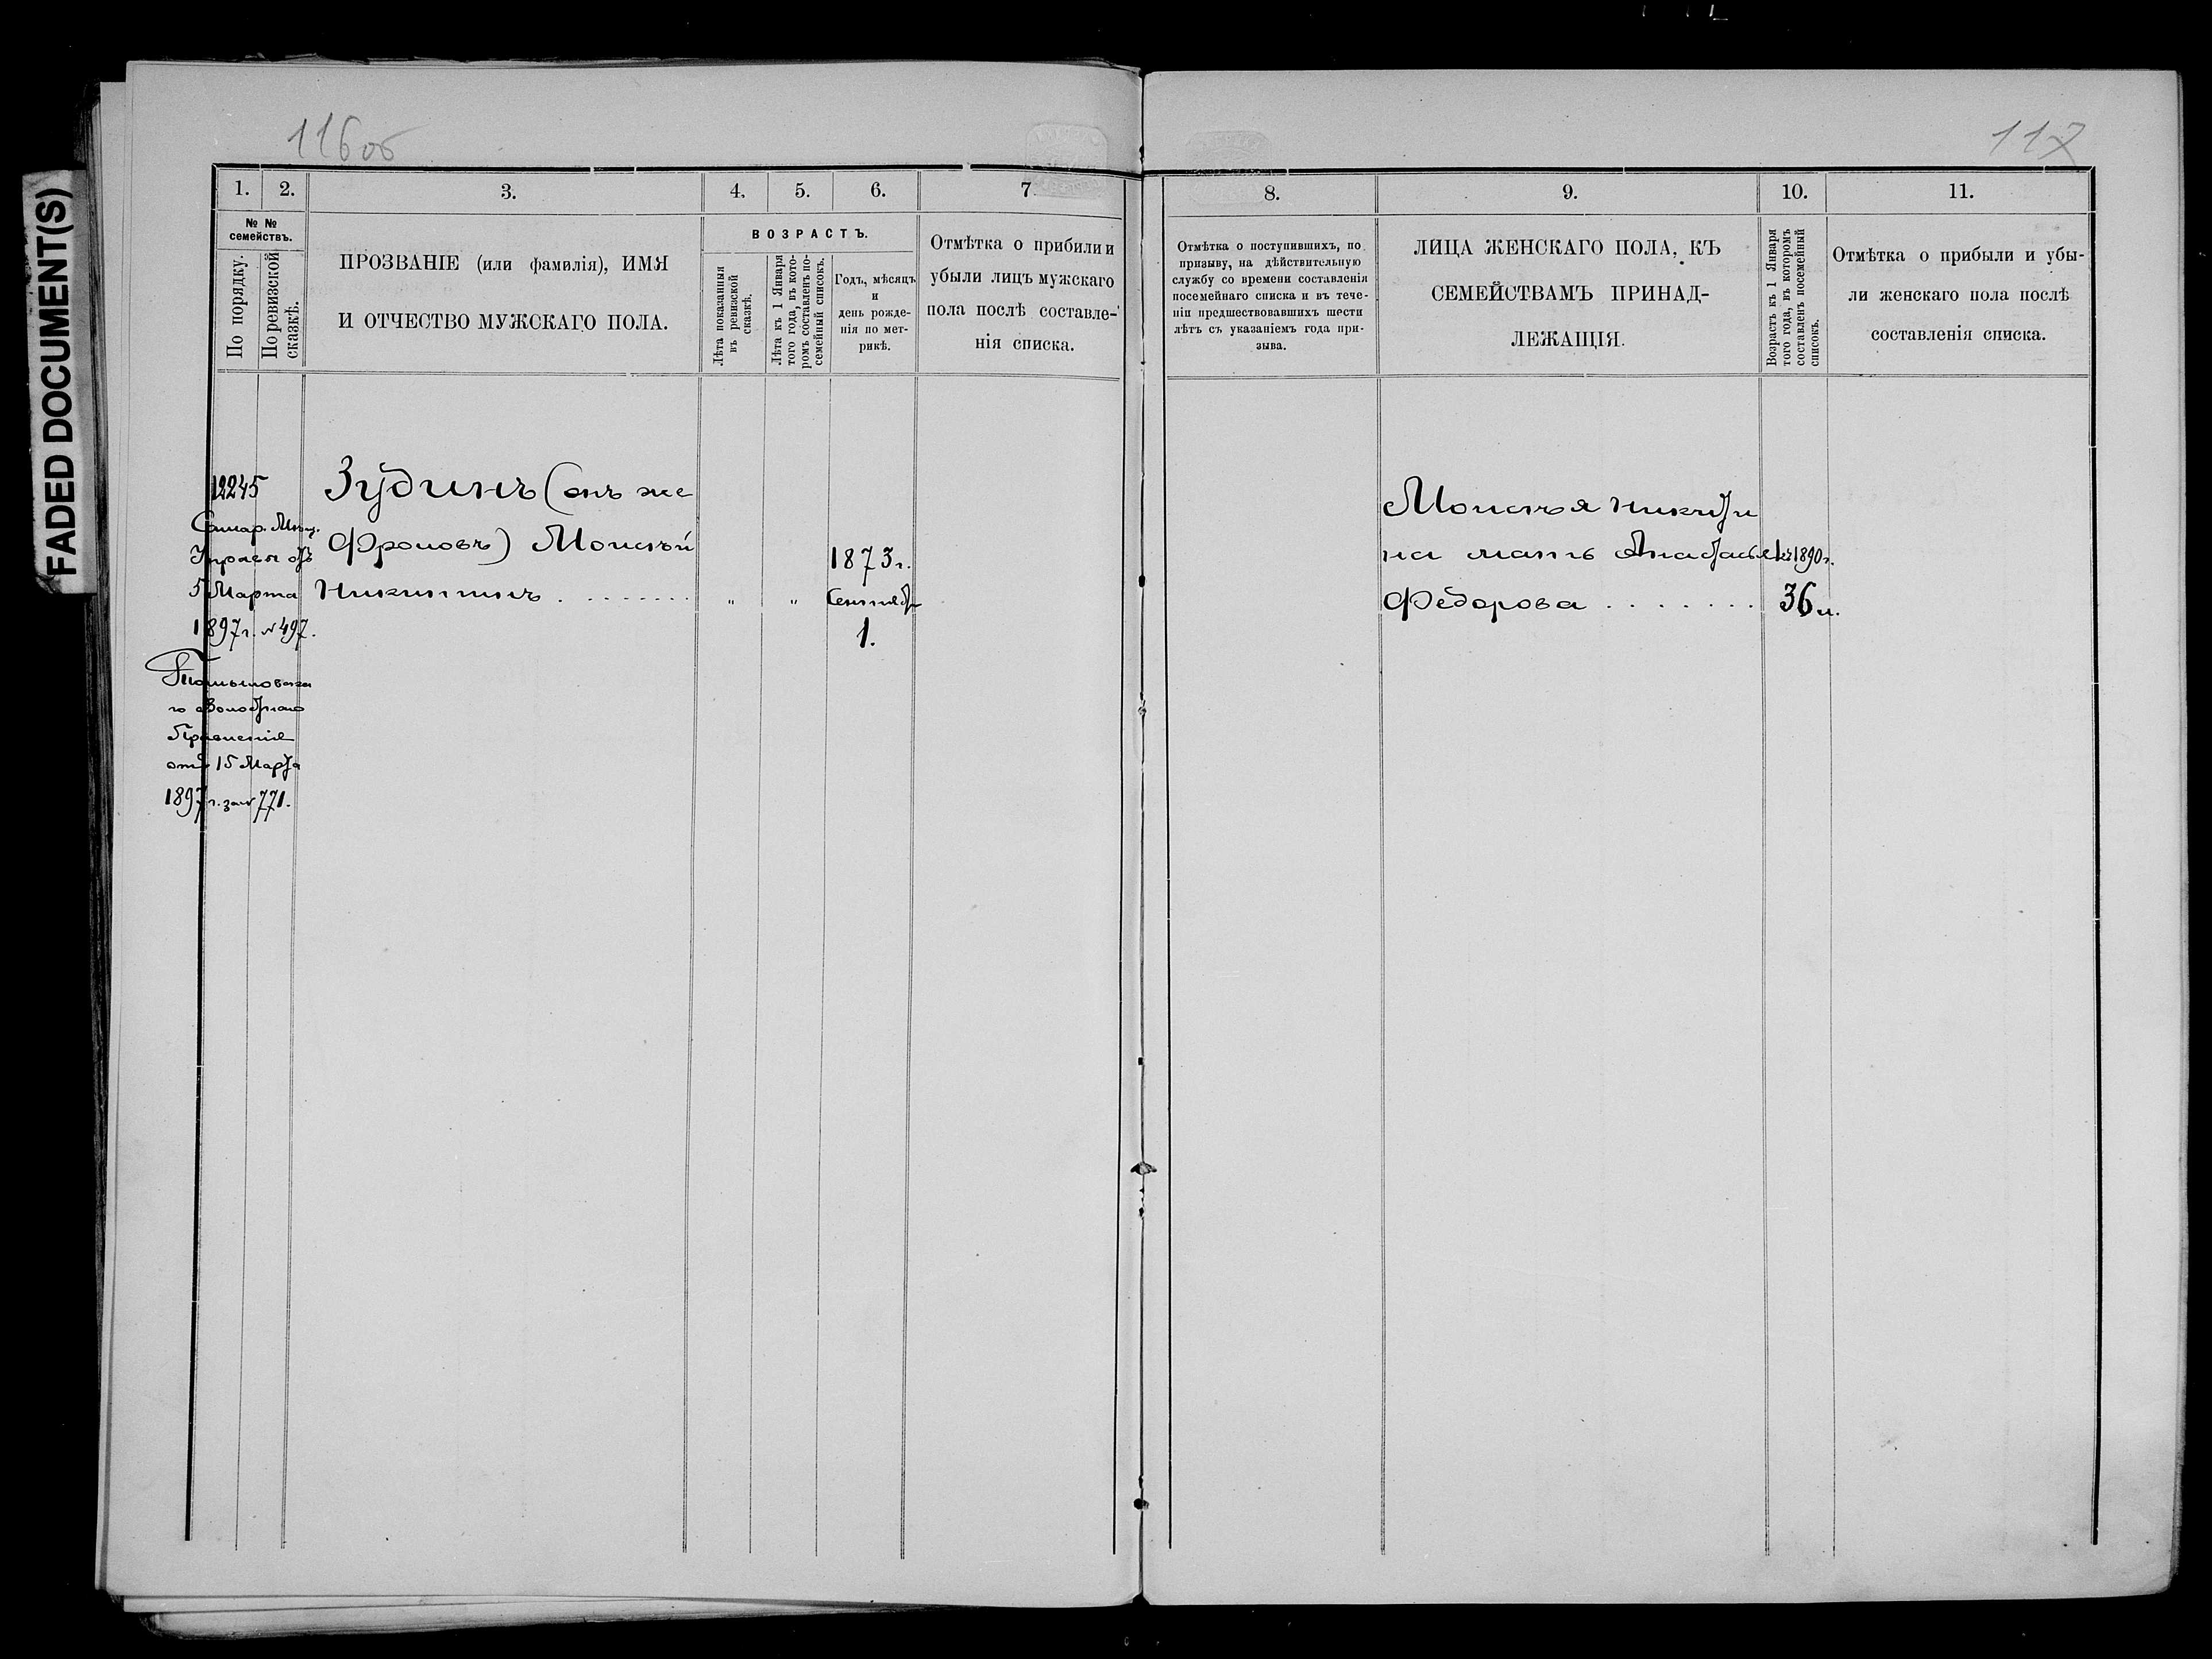 FADED DOCUMENT(S)
116об
1.
2.
3.
4.
5.
6.
7.
№ №
семействъ.
По порядку.
По ревизской
сказкѣ.
ПРОЗВАНІЕ (или фамилія), ИМЯ
И ОТЧЕСТВО МУЖСКАГО ПОЛА.
ВОЗРАСТЪ.
Лѣта показанныя
въ ревизской
сказкѣ.
Лѣта къ 1 Января
того года, въ кото-
ромъ составленъ по-
семейный списокъ.
Годъ, мѣсяцъ
и
день рожде-
нія по мет-
рикѣ.
Отмѣтка о прибыли и
убыли лицъ мужскаго
пола послѣ составле-
нія списка.
12245
Самар. Мѣщ.
Управа отъ
5 Марта
1897 г. № 497.
го Волостного
Правленія
отъ 15 Марта
1897 г. за № 771.
Зудинъ (онъ же
Фроловъ) Моисѣй
Никитинъ . . . . . . .
"
"
1873 г.
Сентября
1.
117
8.
9.
10.
11.
Отмѣтка о поступившихъ, по
призыву, на дѣйствительную
службу со времени составленія
посемейнаго списка и въ тече-
ніи предшествовавшихъ шести
лѣтъ съ указаніемъ года при-
зыва.
ЛИЦА ЖЕНСКАГО ПОЛА, КЪ
СЕМЕЙСТВАМЪ ПРИНАД-
ЛЕЖАЩІЯ.
Возрастъ къ 1 Января
того года, въ которомъ
составленъ посемейный
списокъ.
Отмѣтка о прибыли и убы-
ли женскаго пола послѣ
составленія списка.
Моисѣя Никити
на мать Анастасья
Федорова . . . . . . .
къ 1890 г.
36 л.